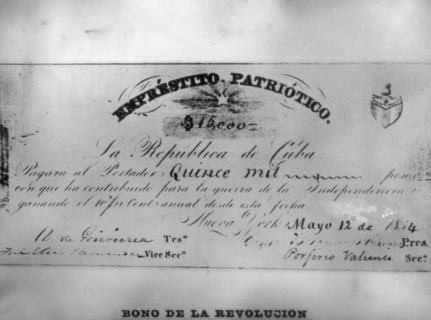 EMPRÉSTITO PATRIÓTICO.
$15,000
La República de Cuba
Pagará al Portador Quince mil pesos
con que ha contribuido para la guerra de la Independencia
ganando el 10 pr Cent anual desde esta fecha
Nueva York Mayo 12 de 1854
Tes.º Pres.
Vice Sec.º Porfirio Valiente Sec.º
BONO DE LA REVOLUCION